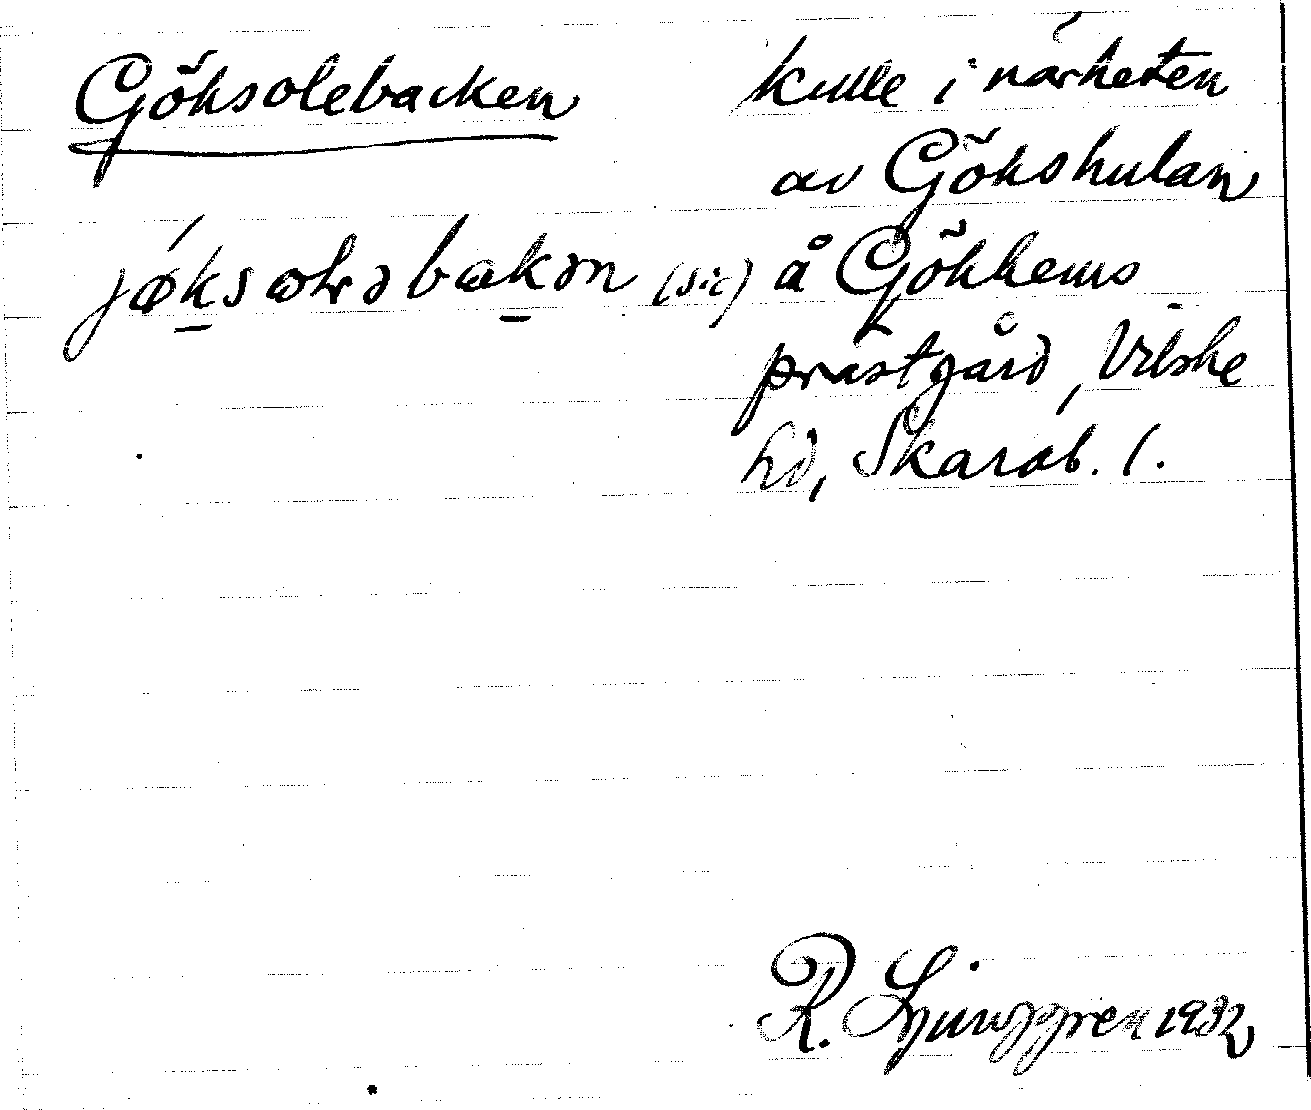 Göksolebacken
jøksoləbakən (sic)
kulle i närheten
av Gökshulan
å Gökhems
prästgård, Vilske
hd, Skarab. l.
R. Ljunggren 1932